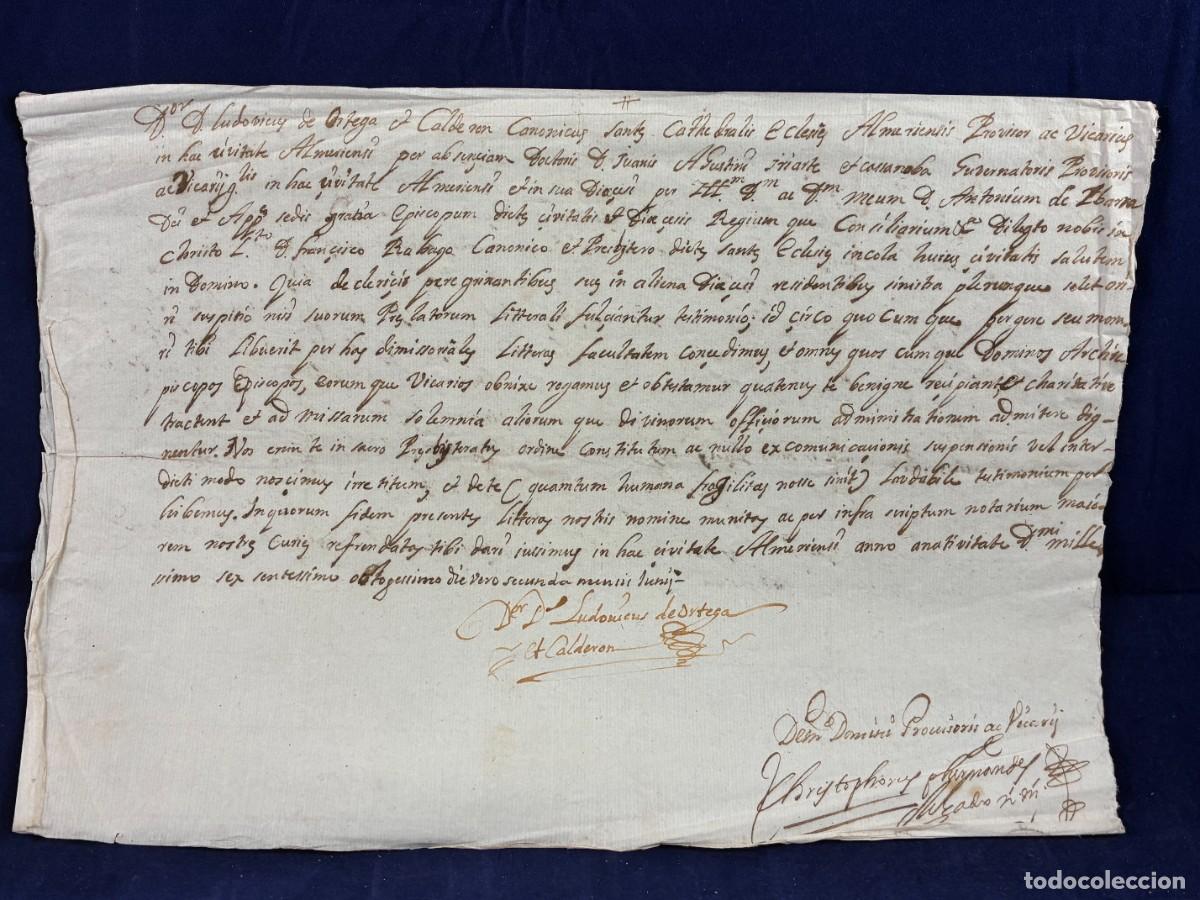 D.or D. Ludovicus de Ortega et Calderon Canonicus sante Cathedralis Eclesie Almeriensis Provisor ac Vicarius
in hac civitate Almeriensi per absenciam Doctoris D. Juanis Agustini Guvernatoris Provisoris
ac Vicarij g.lis in hac civitate Almeriensi et in sua Diocesi per Ill.m D.m ac D.m meum D. Antonium de Ibarra
Dei et App.ce sedis gratia Episcopum dicte civitatis et Diocesis Regium que Consiliarium & Dilecto nobis in
Christo L.to D. francisco Rabago Canonico et Presbitero dicte sante Eclesie incola huius civitatis salutem
in Domino. Quia de clericis peregrinantibus sus in aliena Diocesi residentibus sinistra plerunque solet ori
ri suspitio nisi suorum Prelatorum Litterali fulciantur testimonio; id circo quo cum que pergere seu mora
ri tibi libuerit per has dimissoriales Litteras facultatem concedimus, et omnes quos cum que Dominos Archie
piscopos Episcopos, eorum que Vicarios obnixe rogamus et obtestamur quatenus te benigne recipiant et charitative
tractent et ad missarum solemnia aliorum que divinorum officiorum administrationem admitere dig-
nentur. Nos enim te in sacro Presbyteratus ordine Constitutum ac nullo excomunicationis suspensionis vel inter-
dicti modo noscimus irretitum, et de te (quantum humana fragilitas nosse sinit) laudabile testimonium per
hibemus. In quorum fidem presentes Litteras nostris nomine munitas ac per infra scriptum notarium maio
rem nostre Curie refrendatas tibi dari iussimus in hac civitate Almeriensi anno a nativitate D.mi mille
simo sex sentessimo octogessimo die vero secunda mensis Junij-
D.or D. Ludovicus de Ortega
et Calderon
De m.do Domini Provisoris ac Vicarij
Christophorus fhernandes